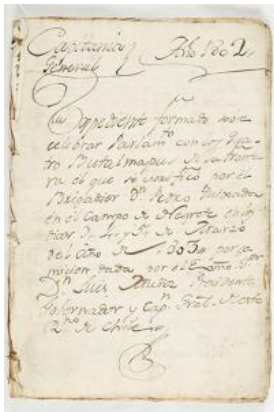 Capitania Año 1802
General
Expediente formato sobre
celebrar Parlamto con los Qua
tro Butalmapus de la frontera
ra el que se verificó por el
Brigadier Dn Pedro Quixada
en el Campo de Negrete en los
dias de Marzo
del año de 1803 por co
micion dada por el Exmo Sor
Dn Luis Muñoz Presidente
Governador y Capn Gral. de este
Rno de Chile